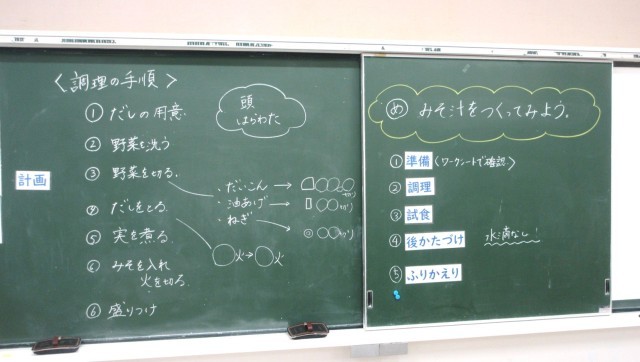 計画
〈調理の手順〉
① だしの用意
② 野菜を洗う
③ 野菜を切る
④ だしをとる
⑤ 実を煮る
⑥ みそを入れ
火を切る
⑥ 盛りつけ
頭
はらわた
・だいこん → ○○○切り
・油あげ → ○○切り
・ねぎ → ○○切り
○火→○火
め みそ汁をつくってみよう。
① 準備 (ワークシートで確認)
② 調理
③ 試食
④ 後かたづけ 水滴なし!
⑤ ふりかえり